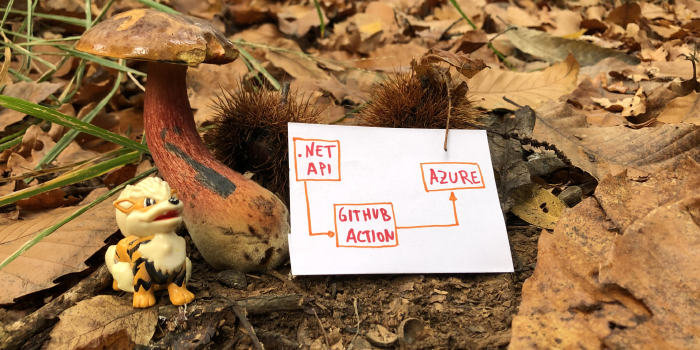 .NET
API
GITHUB
ACTION
AZURE